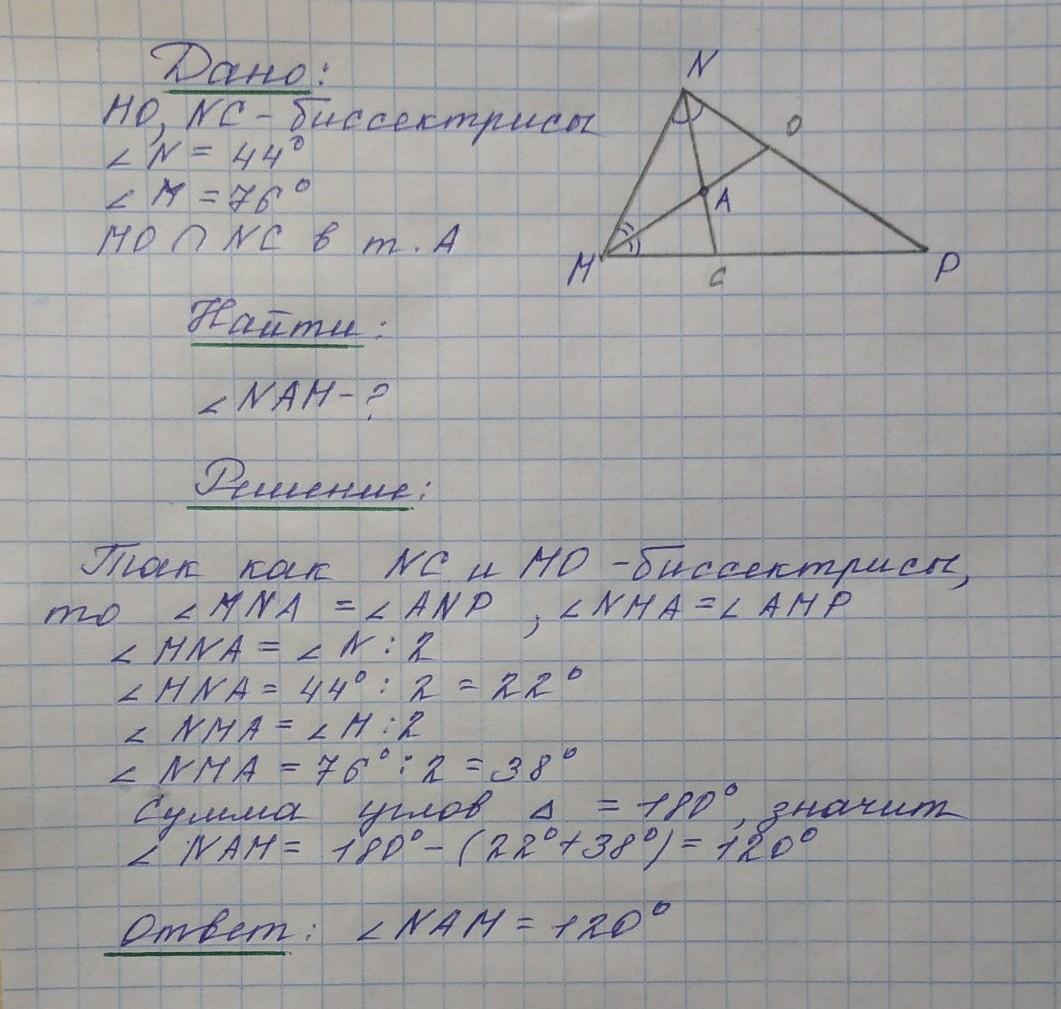 Дано:
МО, NC - биссектрисы
∠N = 44°
∠M = 76°
МО ∩ NC в т. А
N
O
A
M
C
P
Найти:
∠NAM - ?
Решение:
Так как NC и МО - биссектрисы,
то ∠MNA = ∠ANP, ∠NMA = ∠AMP
∠MNA = ∠N : 2
∠MNA = 44° : 2 = 22°
∠NMA = ∠M : 2
∠NMA = 76° : 2 = 38°
Сумма углов △ = 180°, значит
∠NAM = 180° - (22° + 38°) = 120°
Ответ: ∠NAM = 120°